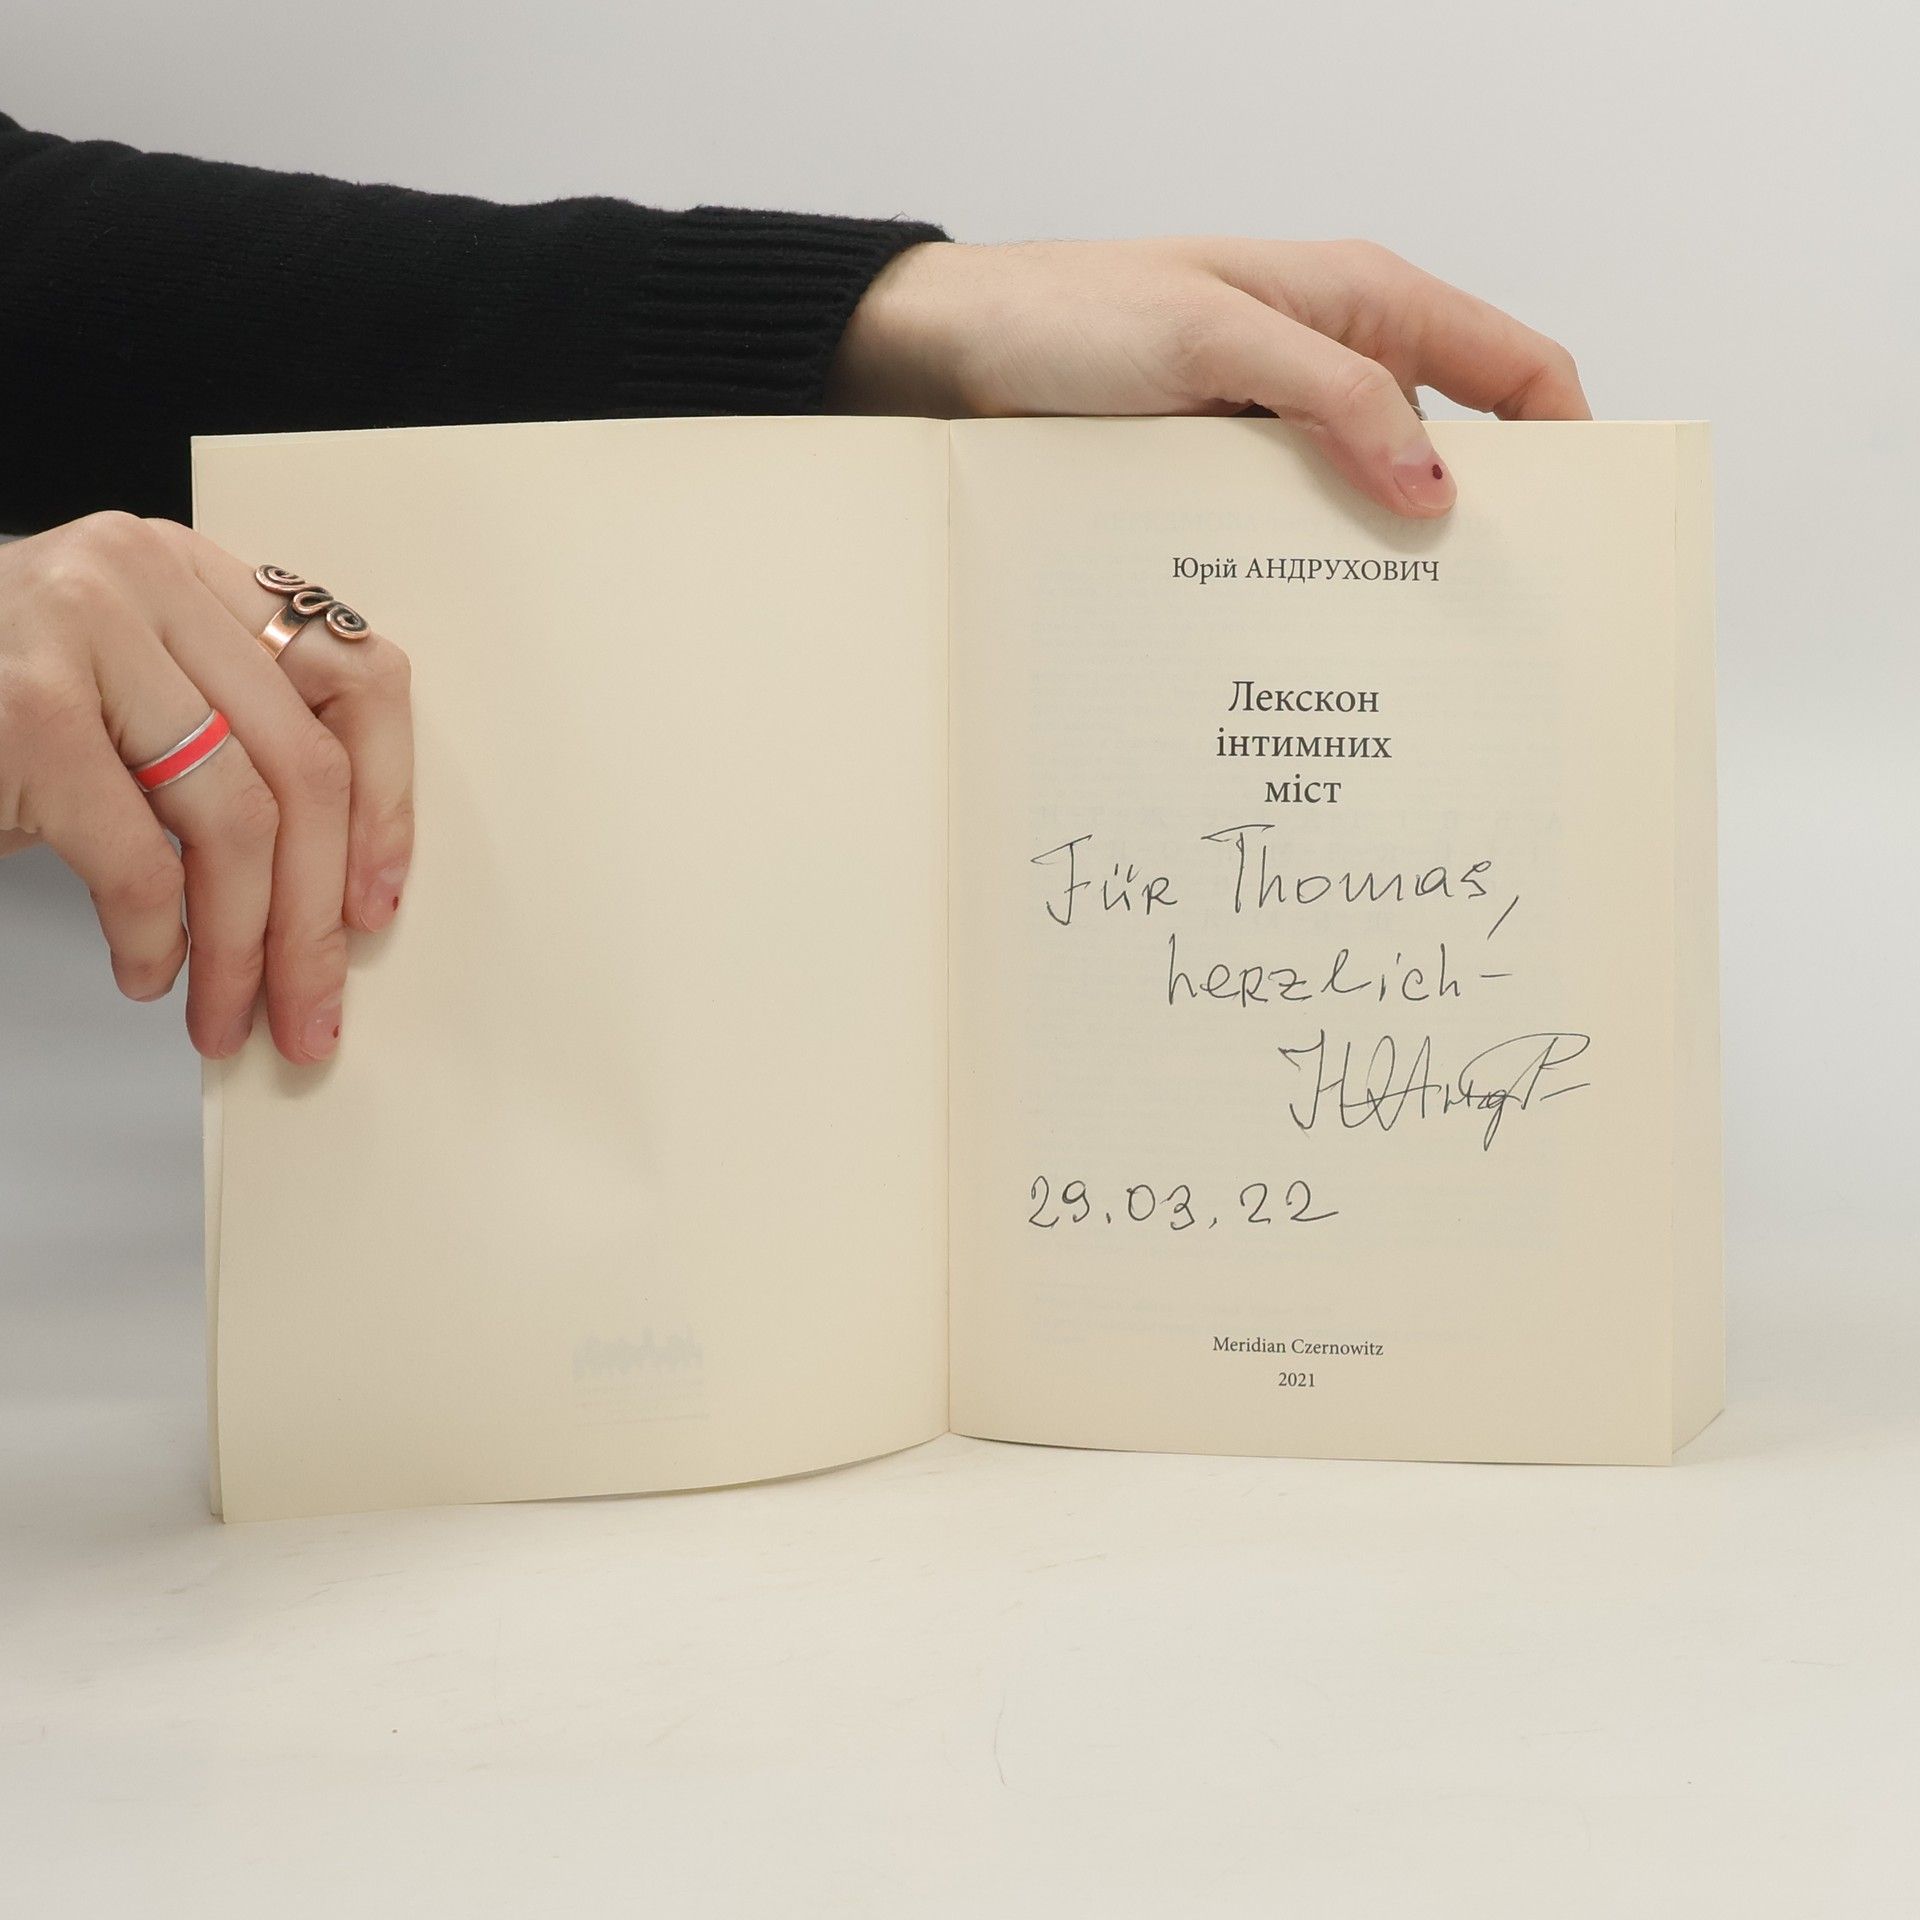 Юрій АНДРУХОВИЧ
Лекскон
інтимних
міст
Für Thomas,
herzlich –
29.03.22
Meridian Czernowitz
2021